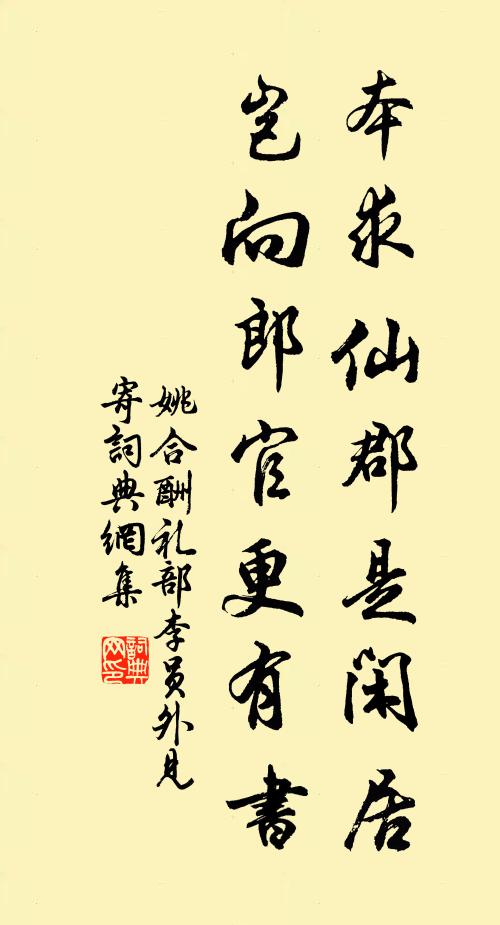 本求仙郡是闲居
岂向郎官更有書
姚合酬礼部李员外見
寄詞典網集
詞典
网印